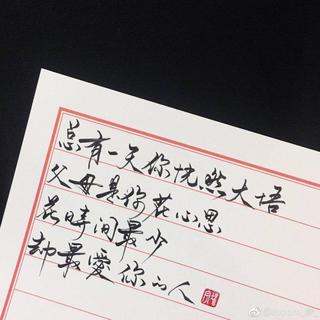 总有一天你恍然大悟
父母是你花心思
花時间最少
却最愛你的人